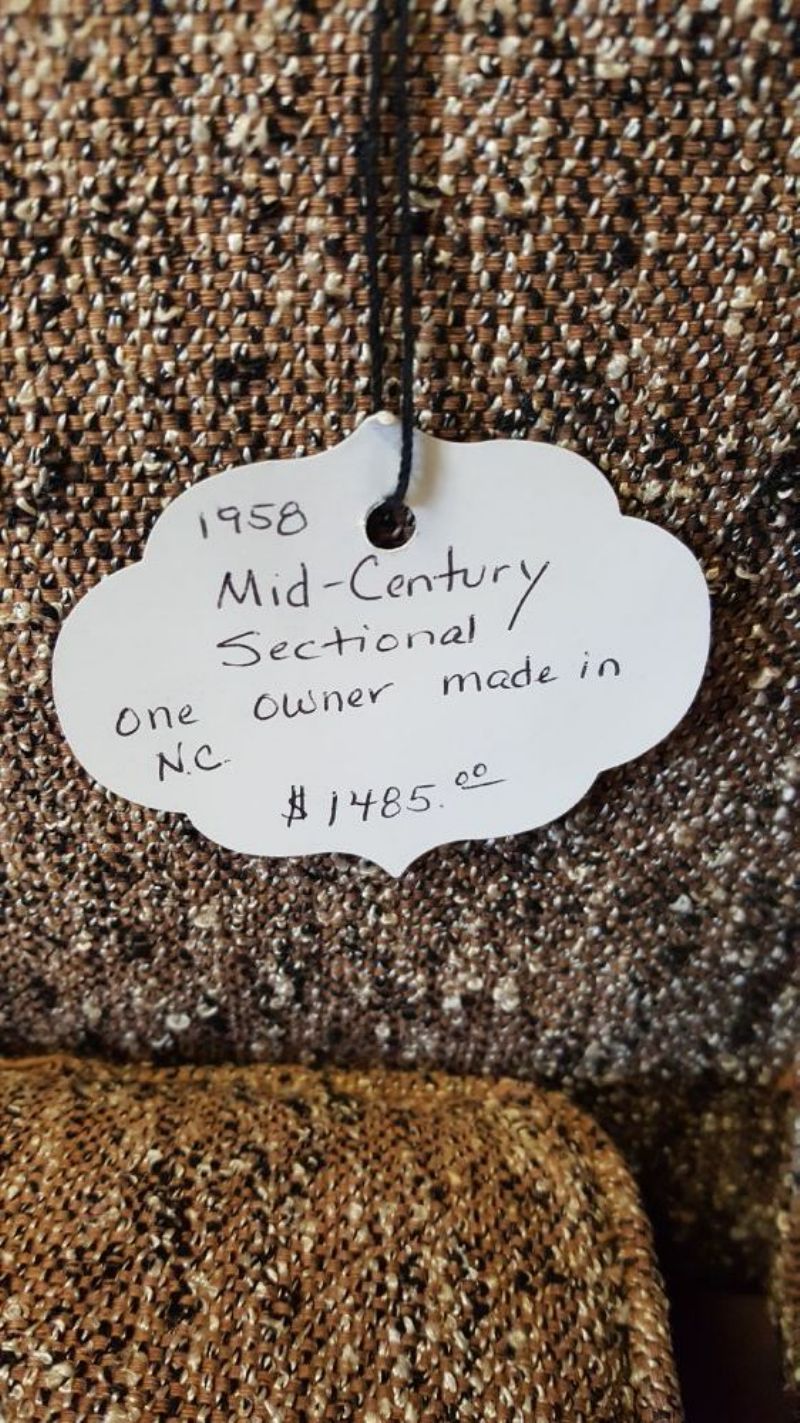 1958
Mid-Century
Sectional
one owner made in
N.C.
$1485.00